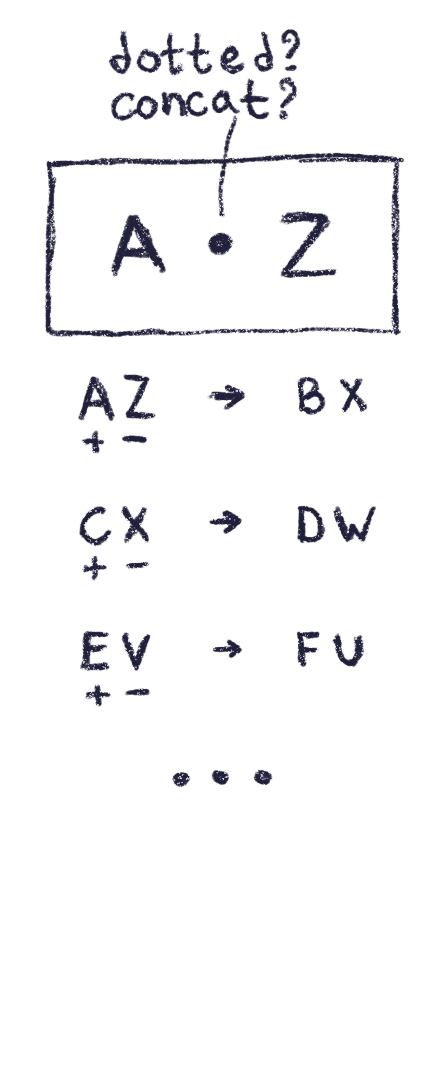 dotted?
concat?
A • Z
AZ → BX
+ -
CX → DW
+ -
EV → FU
+ -
• • •